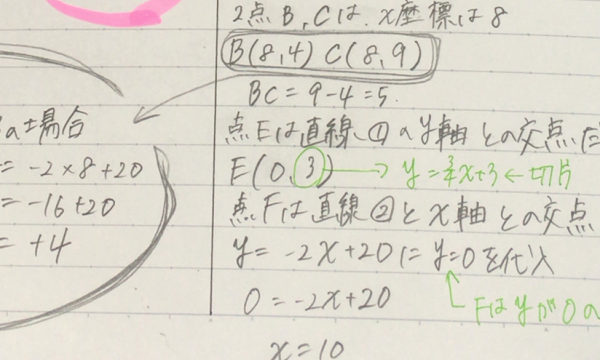 2点B,Cは、x座標は8
B(8,4) C(8,9)
BC = 9-4 = 5.
の場合
= -2×8+20
= -16+20
= +4
点Eは直線①のy軸との交点だ
E(0,3) → y = 3/4x+3 ← 切片
点Fは直線②とx軸との交点
y = -2x+20に y=0を代入
0 = -2x+20
Fはyが0の
x = 10